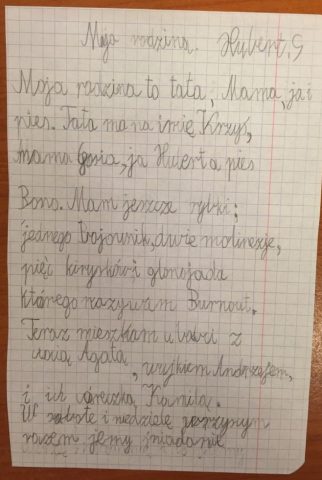 Moja rodzina. Hubert.G
Moja rodzina to tata, Mama, ja i
pies. Tata ma na imię Krzyś,
mama Gosia, ja Huert a pies
Bono. Mam jeszcze rybki:
jednego bojownik, dwie molinezje,
pięć kirysków i glonojada
którego nazywam Burnout.
Teraz mieszkam u babci z
ciocią Agatą, wujkiem Andrzejem,
i ich córeczką Kamilą.
W sobotę i niedzielę
razem jemy śniadanie